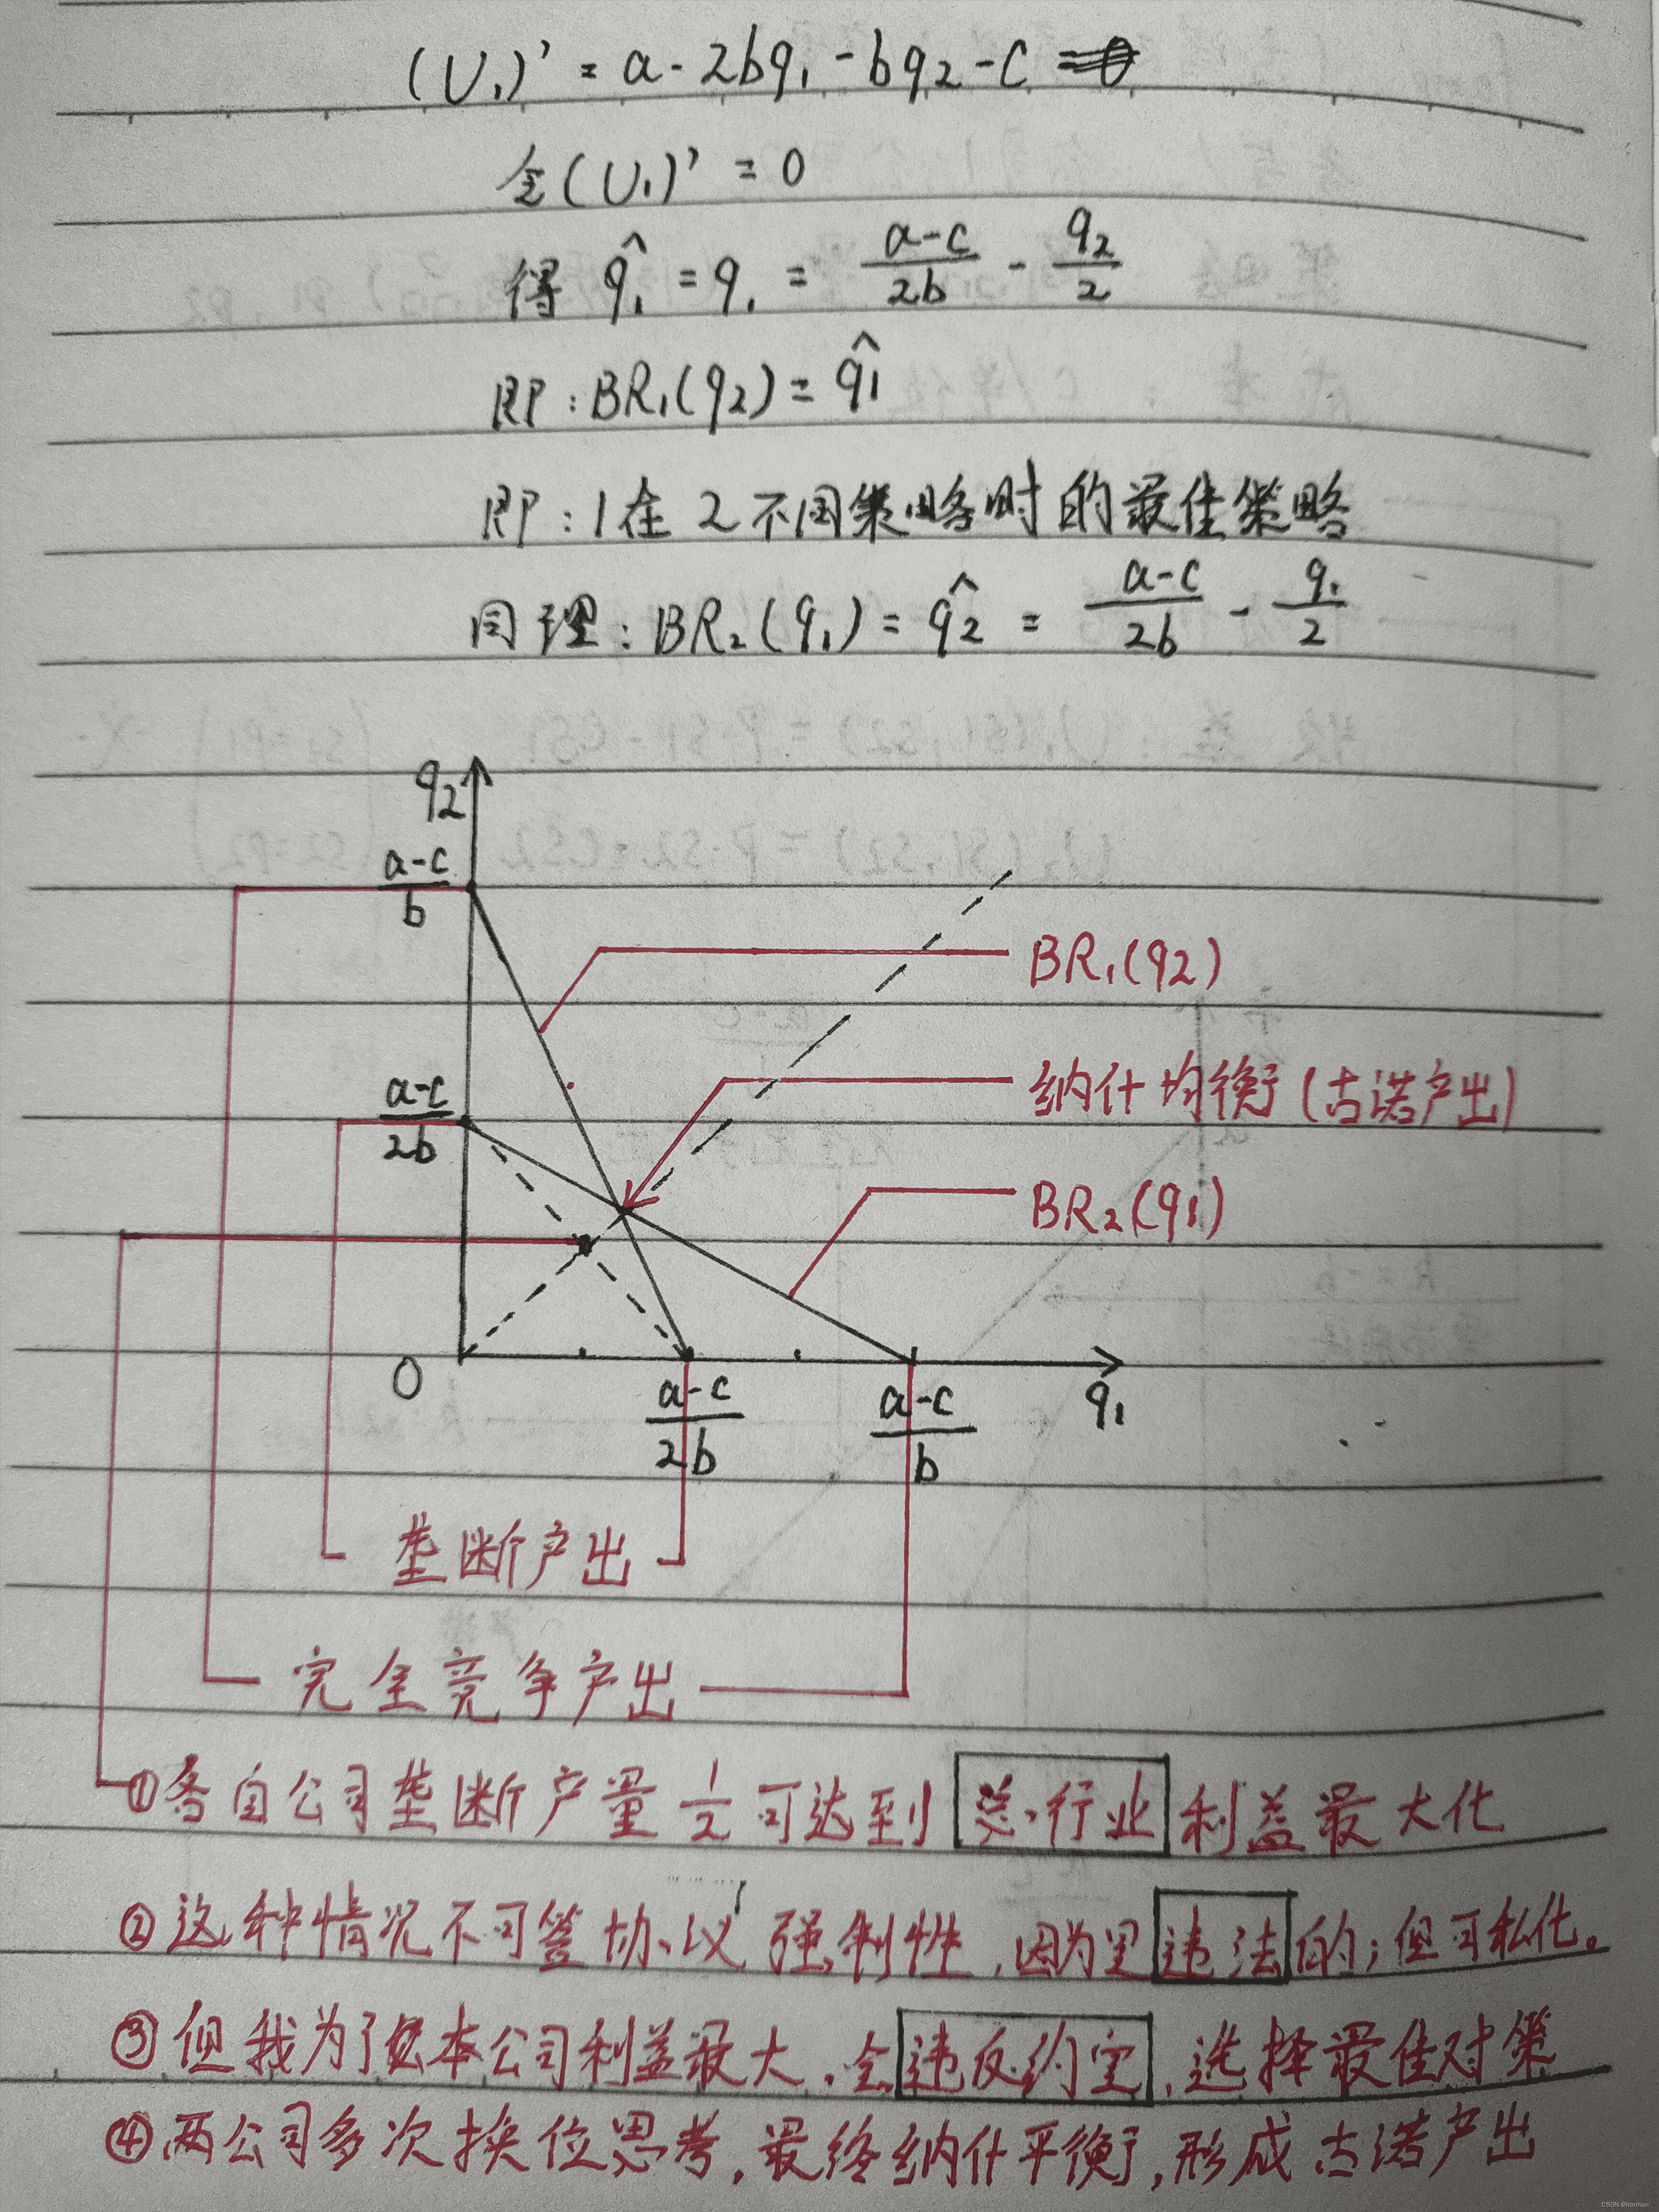 (U₁)' = a - 2bq₁ - bq₂ - c
令(U₁)' = 0
得 q̂₁ = q₁ = (a-c)/2b - q₂/2
即：BR₁(q₂) = q̂₁
即：1在2不同策略时的最佳策略
同理：BR₂(q₁) = q̂₂ = (a-c)/2b - q₁/2
q₂
(a-c)/b
BR₁(q₂)
(a-c)/2b
纳什均衡(古诺产出)
BR₂(q₁)
0
(a-c)/2b
(a-c)/b
q₁
垄断产出
完全竞争产出
①各自公司垄断产量 1/2 可达到 总行业 利益最大化
②这种情况不可签协议强制性，因为是违法的；但可私化。
③但我为了本公司利益最大，会违反约定，选择最佳对策
④两公司多次换位思考，最终纳什平衡，形成古诺产出